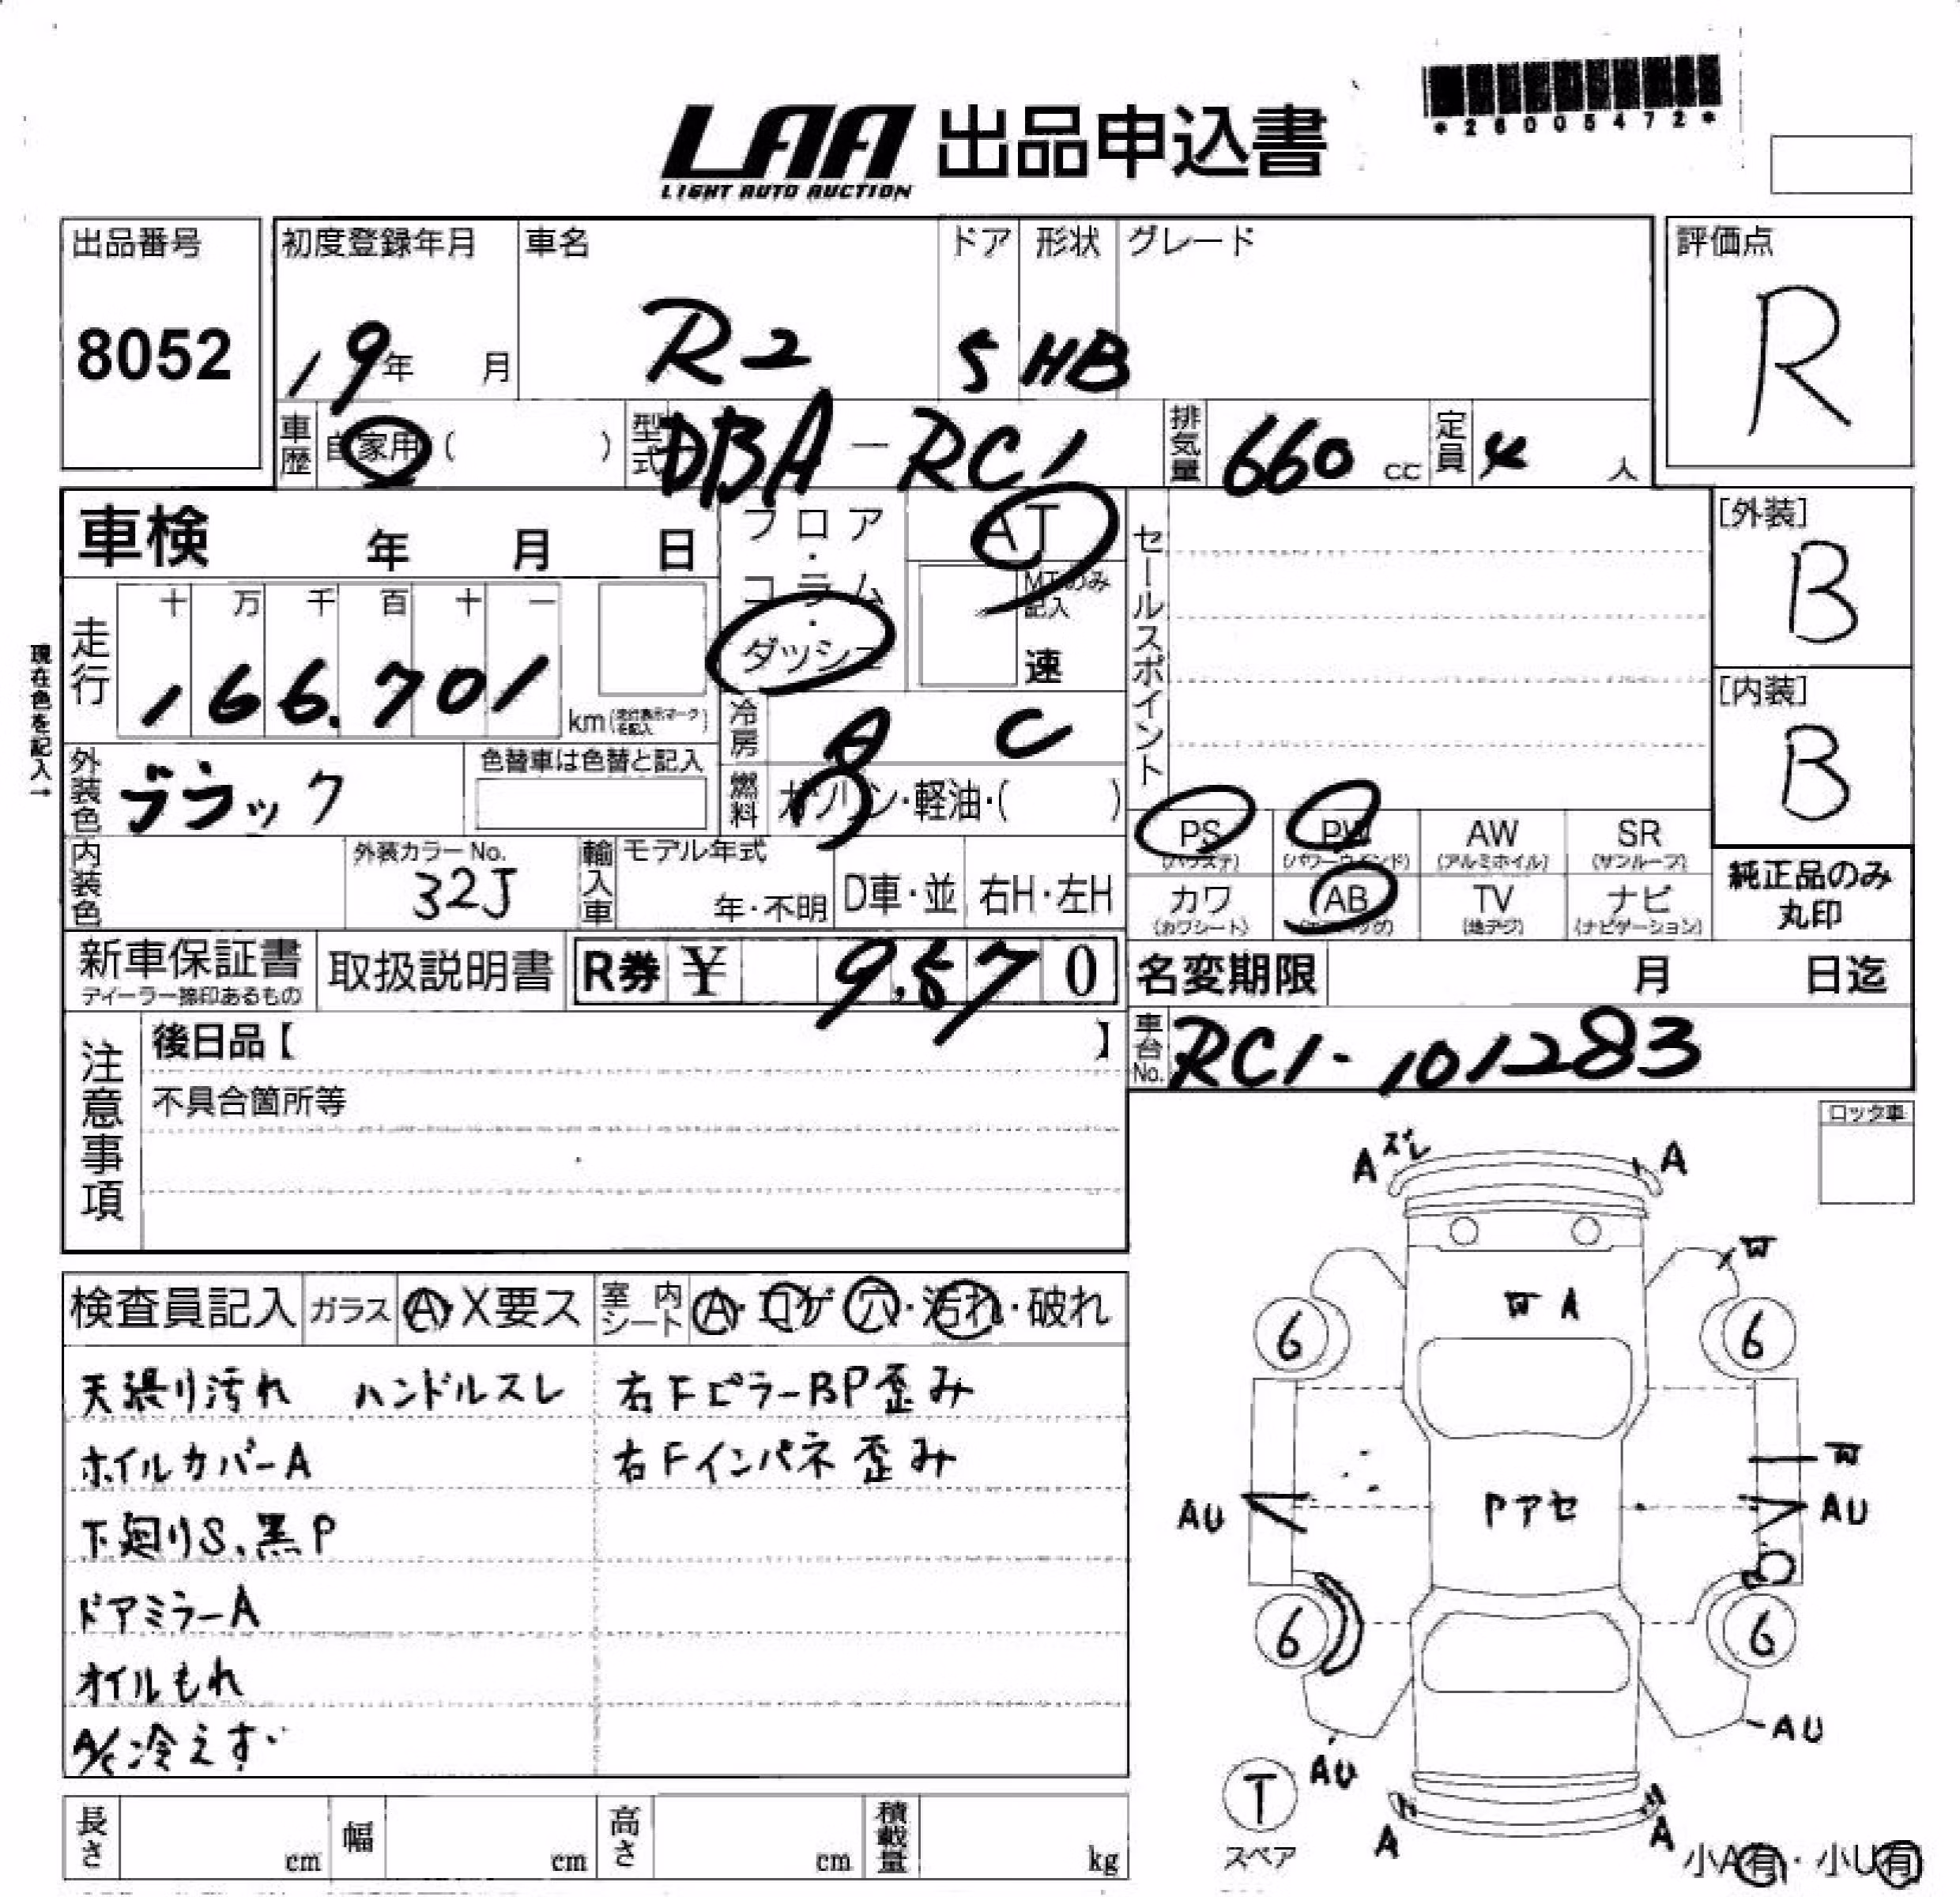 *26005472*
LAA 出品申込書
LIGHT AUTO AUCTION
出品番号 初度登録年月 車名 ドア 形状 グレード 評価点
8052 19年 月 R2 5 HB R
車歴 自家用 ( ) 型式 DBA-RC1 排気量 660 cc 定員 4 人
車検 年 月 日 フロア・コラム・ダッシュ AT セールスポイント [外装]
B
MTのみ記入
速
現在色を記入→
走行 十 万 千 百 十 一
166.701 km (走行表示マークを記入)
[内装]
B
冷房 A C
外装色 ブラック 色替車は色替と記入 燃料 ガソリン・軽油・( )
PS PW AW SR
(パワステ) (パワーウインド) (アルミホイル) (サンルーフ)
内装色 外装カラーNo. 32J 輸入車 モデル年式 年・不明 D車・並 右H・左H
カワ AB TV ナビ
(カワシート) (エアバッグ) (地デジ) (ナビゲーション)
純正品のみ
丸印
新車保証書 取扱説明書 R券 ¥ 9,870 名変期限 月 日迄
ディーラー捺印あるもの
注意事項 後日品【 】 車台No. RC1-101283
不具合箇所等
ロック車
検査員記入 ガラス A・X要ス 室内シート A・コゲ・穴・汚れ・破れ
天張り汚れ ハンドルスレ 右FピラーBP歪み
ホイルカバーA 右Fインパネ歪み
下廻りS、黒P
ドアミラーA
オイルもれ
A/C冷えず
長さ cm 幅 cm 高さ cm 積載量 kg
A ズレ A
W
W A
6 6
W
AU Pアセ AU
6 6
AU AU
T
スペア
A A
小A有・小U有